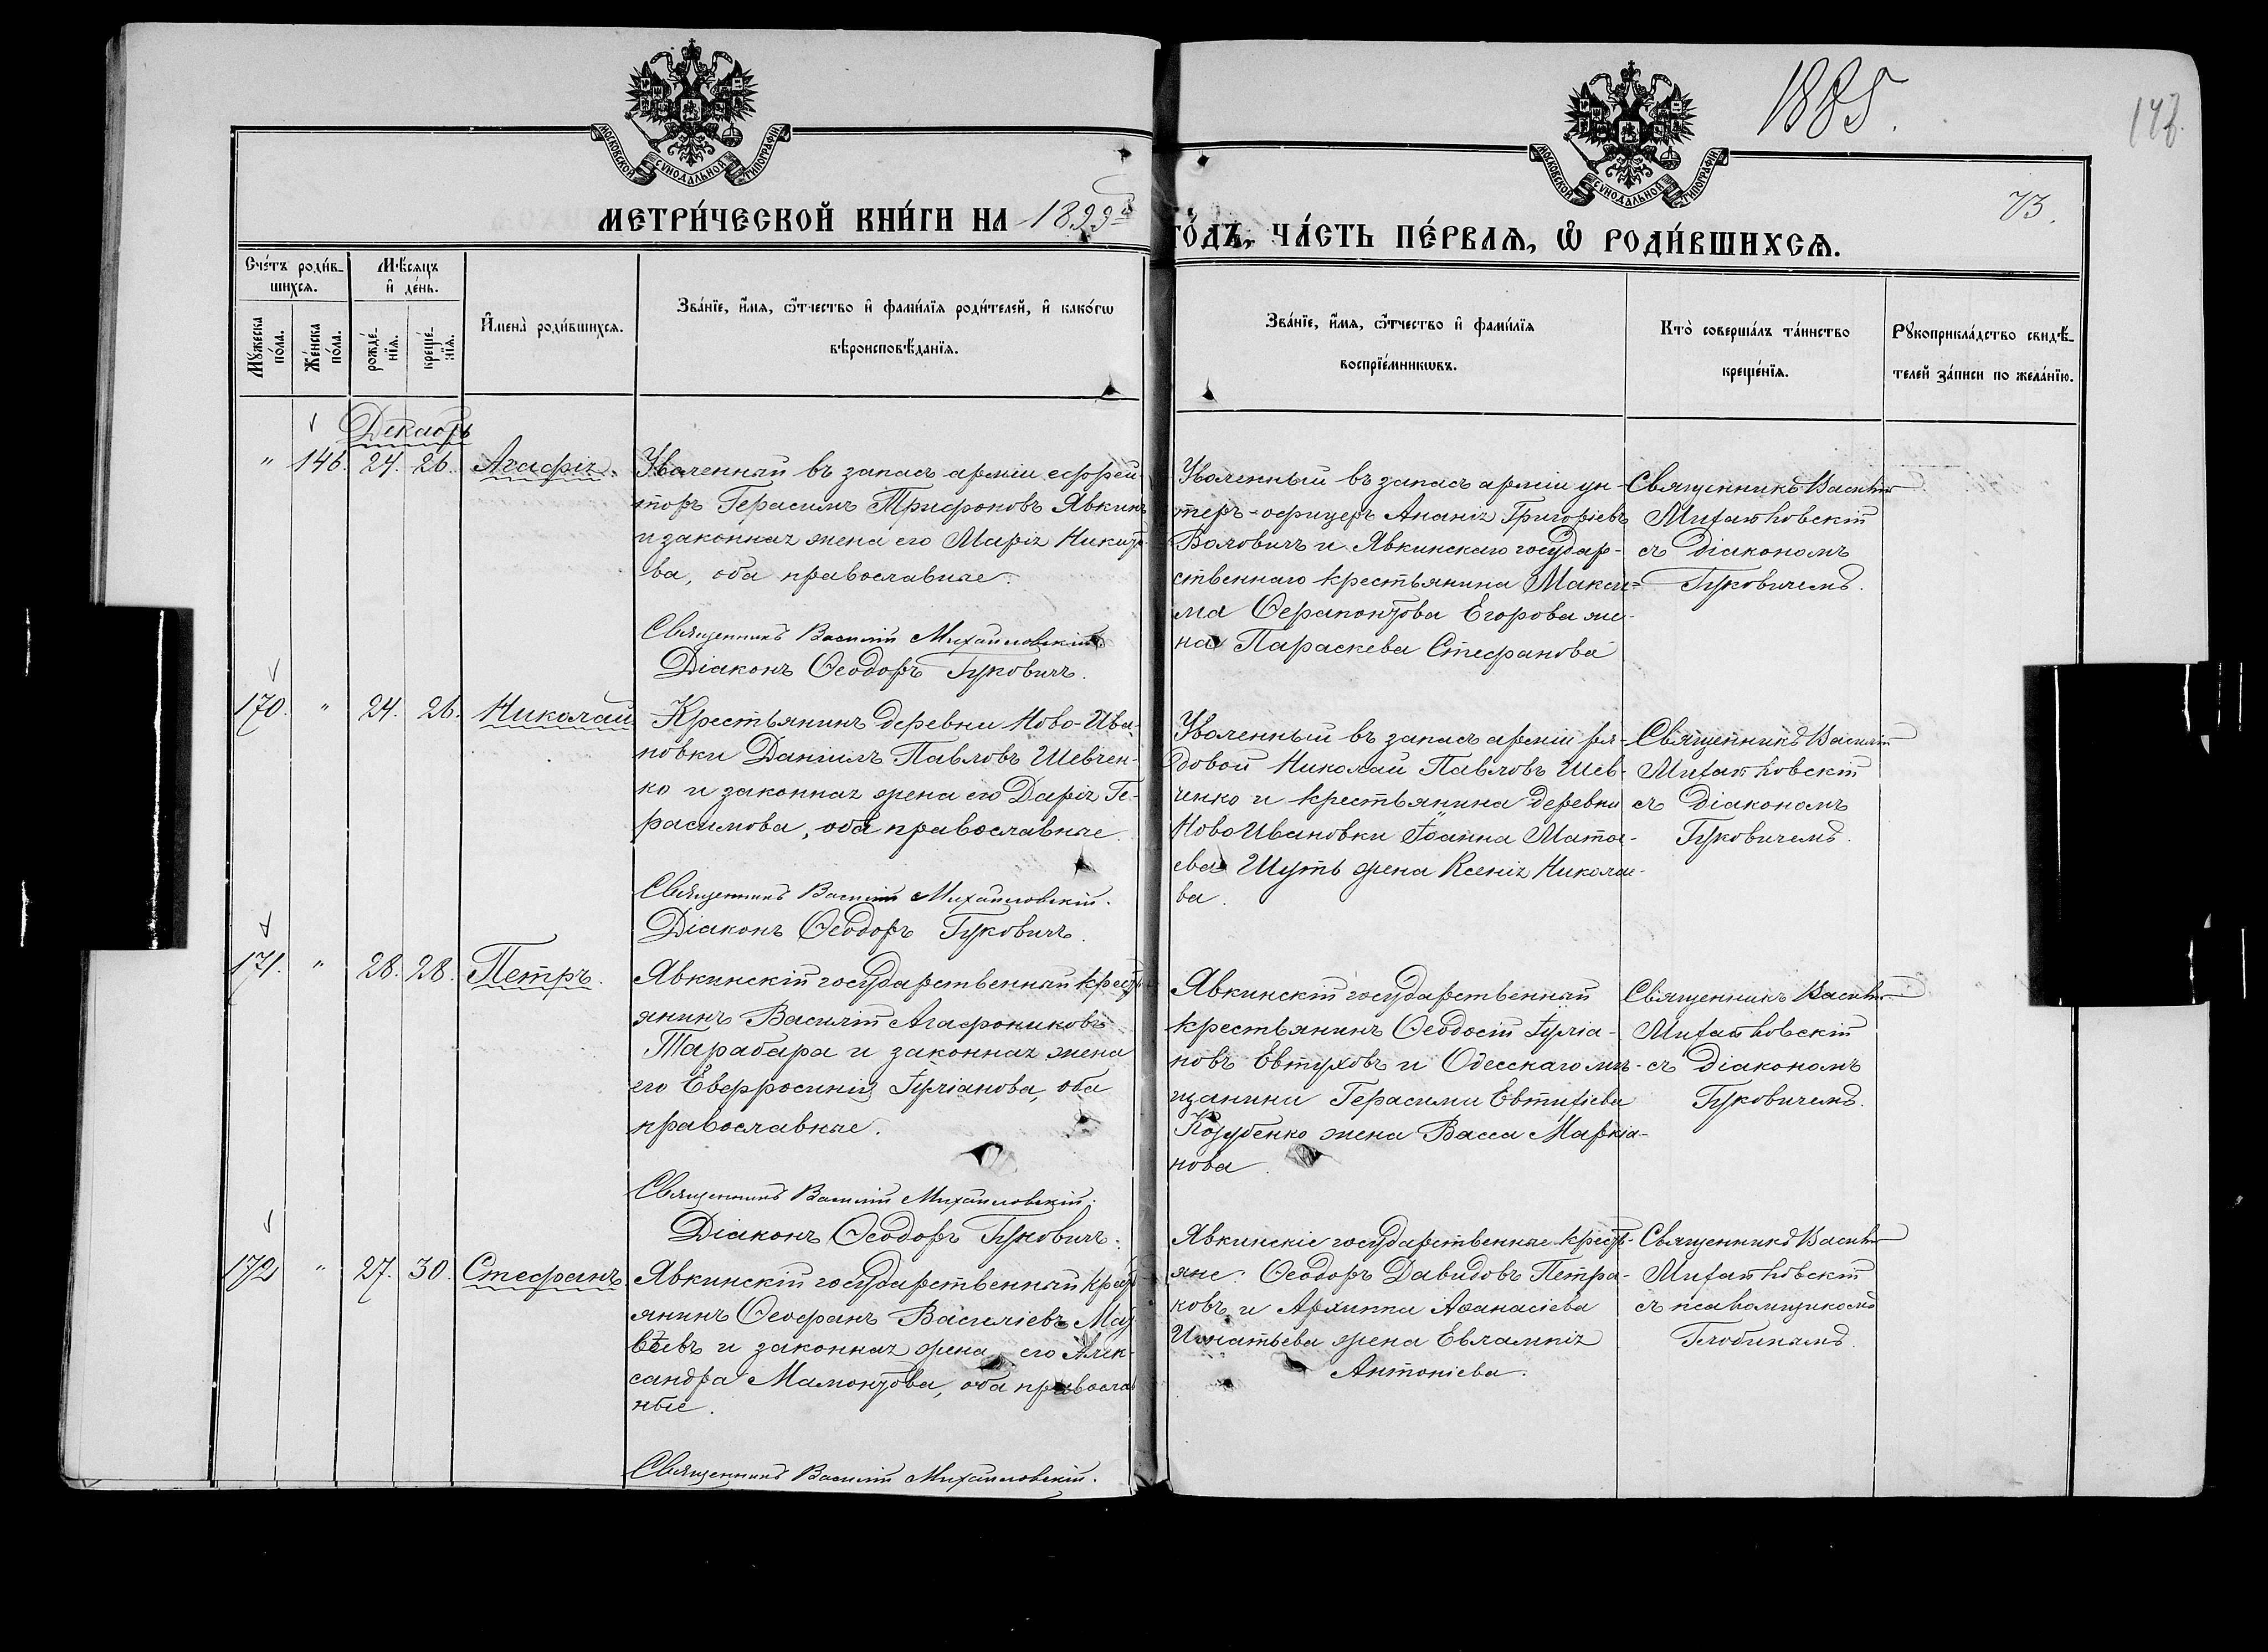 1885.
148.
73.
МОСКОВСКОЙ СѴНОДАЛЬНОЙ ТИПОГРАФІИ
МОСКОВСКОЙ СѴНОДАЛЬНОЙ ТИПОГРАФІИ
МЕТРИ́ЧЕСКОЙ КНИ́ГИ НА 1899й
ГО́ДЪ, ЧА́СТЬ ПЕ́РВАѦ, Ѽ РОДИ́ВШИХСѦ.
Сче́тъ роди́в-
шихсѧ.
Мꙋ́жеска
по́ла.
Же́нска
по́ла.
Мѣ́сѧцъ
и҆ де́нь.
рожде́-
нїѧ.
креще́-
нїѧ.
И҆мена̀ роди́вшихсѧ.
Зва́нїе, и҆́мѧ, ѻ҆́тчество и҆ фами́лїѧ роди́телей, и҆ како́гѡ
вѣроисповѣ́данїѧ.
Зва́нїе, и҆́мѧ, ѻ҆́тчество и҆ фами́лїѧ
воспрїе́мникѡвъ.
Кто̀ соверша́лъ та́инство
креще́нїѧ.
Рꙋкоприкла́дство свидѣ́-
телей за́писи по жела́нїю.
Декабрь
" 146. 24. 26. Агафія.
Уволенный въ запасъ арміи ефрей-
торъ Герасимъ Трифоновъ Явкинъ
и законная жена его Марія Никито-
ва, оба православные.
Священникъ Василій Михайловскій.
Діаконъ Ѳеодоръ Гуковичъ.
Уволенный въ запасъ арміи ун-
теръ-офицеръ Ананія Григоріевъ
Воловичъ и Явкинскаго государ-
ственнаго крестьянина Макси-
ма Ѳерапонтова Егорова же-
на Параскева Стефанова
Священникъ Василій
Михайловскій
съ діакономъ
Гуковичемъ.
170. " 24. 26. Николай
Крестьянинъ деревни Ново-Ива-
новки Даніилъ Павловъ Шевчен-
ко и законная жена его Дарія Ге-
расимова, оба православные.
Священникъ Василій Михайловскій.
Діаконъ Ѳеодоръ Гуковичъ.
Уволенный въ запасъ арміи ря-
довой Николай Павловъ Шев-
ченко и крестьянина деревни
Ново Ивановки Іоанна Матѳ-
ева Шуть жена Ксенія Никола-
ва.
Священникъ Василій
Михайловскій
съ діакономъ
Гуковичемъ.
171. " 28. 28. Петръ.
Явкинскій государственный крест
янинъ Василій Агафониковъ
Тарабара и законная жена
его Евфросинія Іуліанова, оба
православные.
Священникъ Василій Михайловскій.
Діаконъ Ѳеодоръ Гуковичъ.
Явкинскій государственный
крестьянинъ Ѳеодосій Іуліа-
новъ Евтуховъ и Одесскаго мѣ-
щанина Герасима Евтихіева
Козубенко жена Васса Маркіа-
нова.
Священникъ Василій
Михайловскій
съ діакономъ
Гуковичемъ.
172 " 27. 30. Стефанъ.
Явкинскій государственный крест
янинъ Ѳеофанъ Василіевъ Мат
вѣевъ и законная жена его Алек-
сандра Мамонтова, оба православ
ные.
Священникъ Василій Михайловскій.
Явкинскіе государственные крест-
яне: Ѳеодоръ Давидовъ Петра-
ковъ и Архиппа Аѳанасіева
Игнатьева жена Евлампія
Антоніева.
Священникъ Василій
Михайловскій
съ псаломщикомъ